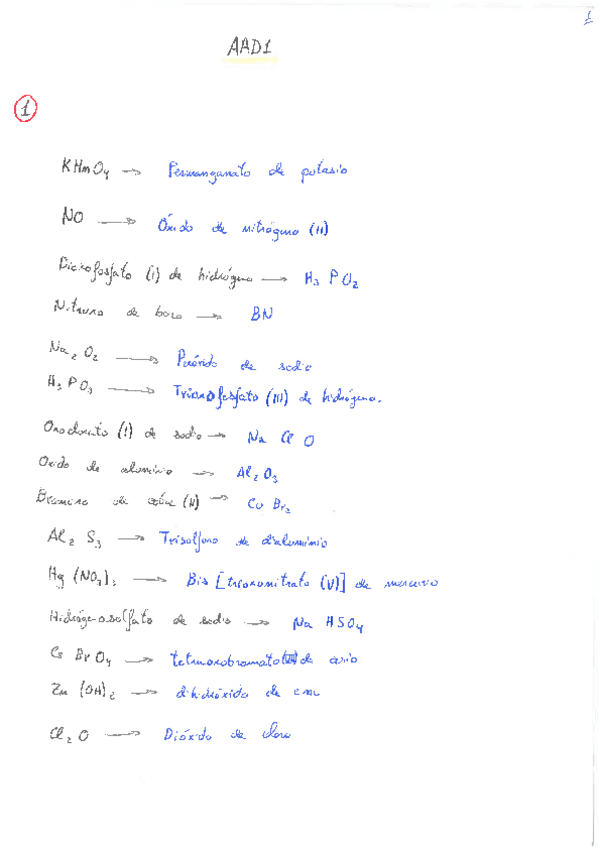 1
AAD1
1
KHmO4 → Permanganato de potasio
NO → Óxido de nitrógeno (II)
Dioxofosfato (I) de hidrógeno → H3 PO2
Nitruro de boro → BN
Na2 O2 → Peróxido de sodio
H3 PO3 → Trioxofosfato (III) de hidrógeno.
Oxoclorato (I) de sodio → Na Cl O
Oxido de aluminio → Al2 O3
Bromuro de cobre (II) → Cu Br2
Al2 S3 → Trisulfuro de dialuminio
Hg (NO3)2 → Bis [trioxonitrato (V)] de mercurio
Hidrógenosulfato de sodio → Na HSO4
Cs BrO4 → tetraoxobromato de cesio
Zn (OH)2 → dihidróxido de zinc
Cl2 O → Dióxido de cloro